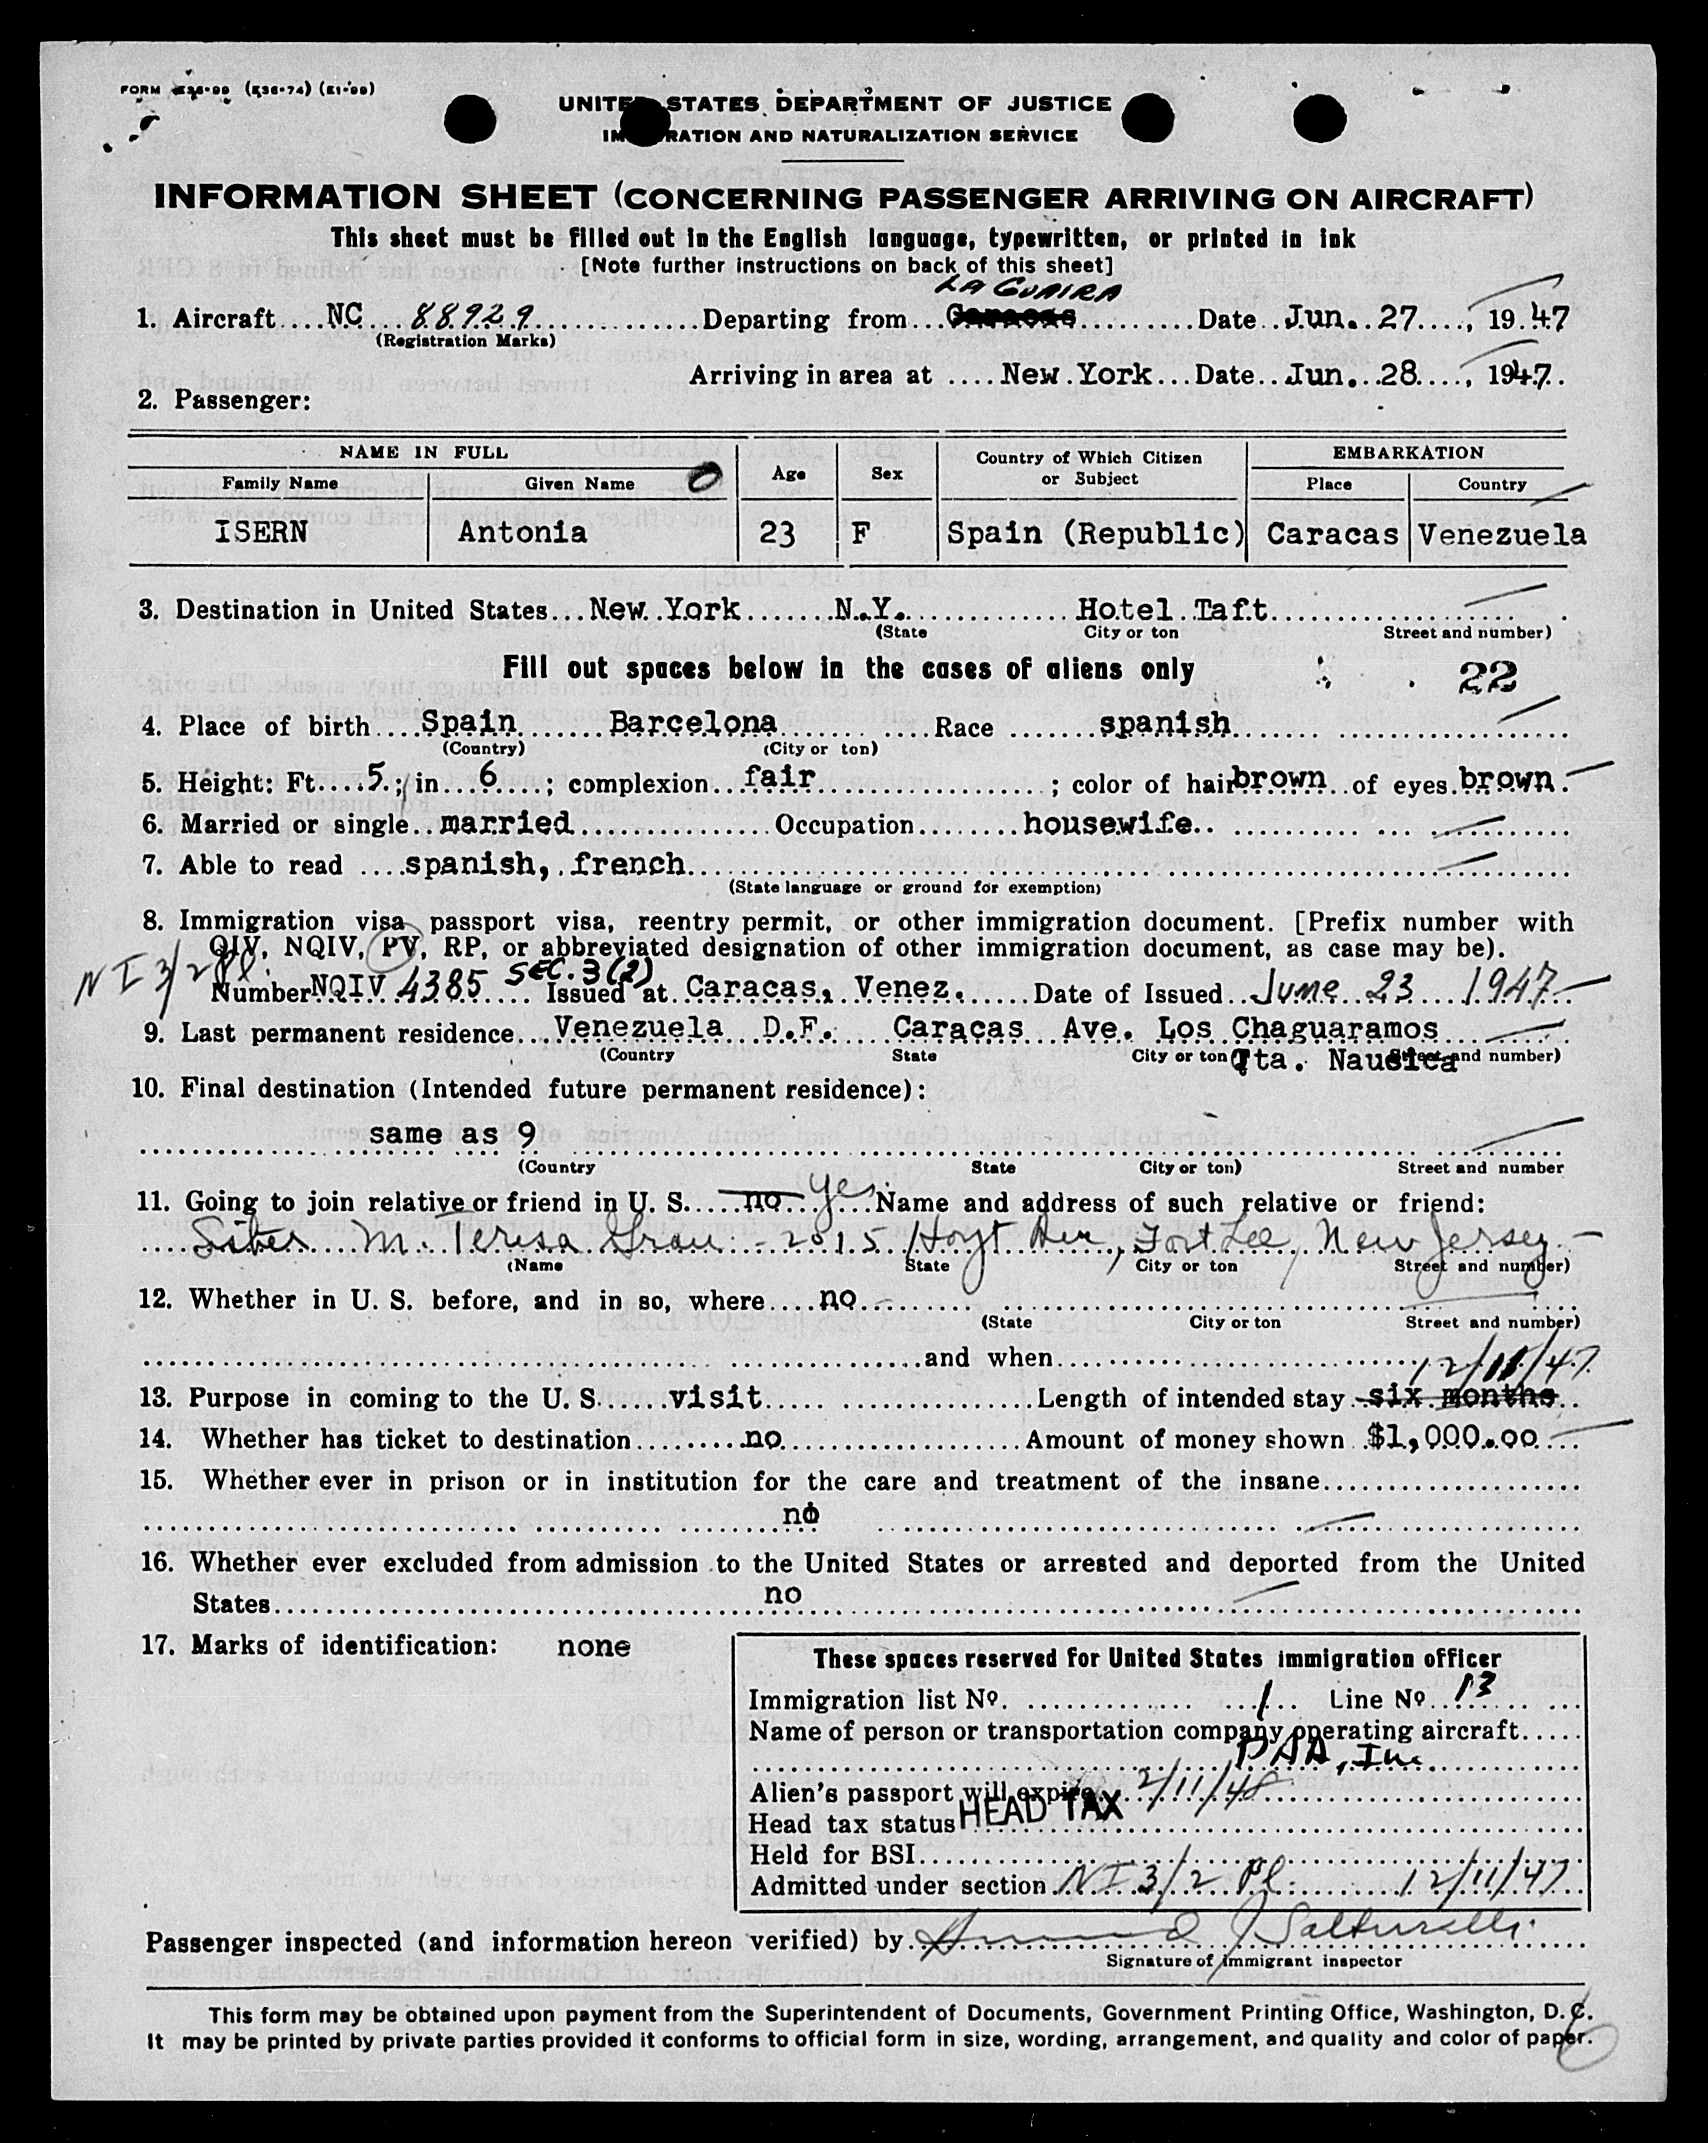 FORM (E36-74) (E1-99)
UNITED STATES DEPARTMENT OF JUSTICE
RATION AND NATURALIZATION SERVICE
INFORMATION SHEET (CONCERNING PASSENGER ARRIVING ON AIRCRAFT)
This sheet must be filled out in the English language, typewritten, or printed in ink
[Note further instructions on back of this sheet]
LA GUAIRA
1. Aircraft....NC...88929...............Departing from...Caracas.........Date..Jun..27...., 19.47
(Registration Marks)
Arriving in area at ....New.York...Date..Jun...28...., 1947..
2. Passenger:
NAME IN FULL Age Sex Country of Which Citizen or Subject EMBARKATION
Family Name Given Name Place Country
ISERN Antonia 23 F Spain (Republic) Caracas Venezuela
3. Destination in United States...New.York.......N.Y...............Hotel.Taft...................
(State City or ton Street and number)
Fill out spaces below in the cases of aliens only
22
4. Place of birth....Spain.......Barcelona............Race .......spanish.......
(Country) (City or ton)
5. Height: Ft....5.; in...6....; complexion..fair...................; color of hair brown..of eyes.brown.
6. Married or single..married................Occupation........housewife..
7. Able to read ....spanish,.french...............
(State language or ground for exemption)
8. Immigration visa passport visa, reentry permit, or other immigration document. [Prefix number with
QIV, NQIV, PV, RP, or abbreviated designation of other immigration document, as case may be).
NI 3/2 Pl.
SEC. 3(2)
Number NQIV 4385....Issued at..Caracas,.Venez.......Date of Issued..June 23 1947
9. Last permanent residence...Venezuela...D.F.....Caracas...Ave. Los Chaguaramos
(Country State City or ton Qta. Nausica Street and number)
10. Final destination (Intended future permanent residence):
same as 9
(Country State City or ton) Street and number
11. Going to join relative or friend in U. S.....no...yes...Name and address of such relative or friend:
Sister M. Teresa Grau - 2015 Hoyt Ave, Fort Lee, New Jersey
(Name State City or ton Street and number)
12. Whether in U. S. before, and in so, where....no..........
(State City or ton Street and number)
..........and when..........
12/11/47
13. Purpose in coming to the U. S......visit.....................Length of intended stay six months..
14. Whether has ticket to destination.........no...................Amount of money shown $1,000.00....
15. Whether ever in prison or in institution for the care and treatment of the insane...................
no
16. Whether ever excluded from admission to the United States or arrested and deported from the United
States..........no..........
17. Marks of identification: none
These spaces reserved for United States immigration officer
Immigration list No. ............1... Line No..13...
Name of person or transportation company operating aircraft.....
PAA, Inc
Alien's passport will expire 2/11/48
Head tax status HEAD TAX
Held for BSI..........
Admitted under section NI 3/2 Pl. 12/11/47
Passenger inspected (and information hereon verified) by..........
Signature of immigrant inspector
This form may be obtained upon payment from the Superintendent of Documents, Government Printing Office, Washington, D. C.
It may be printed by private parties provided it conforms to official form in size, wording, arrangement, and quality and color of paper.